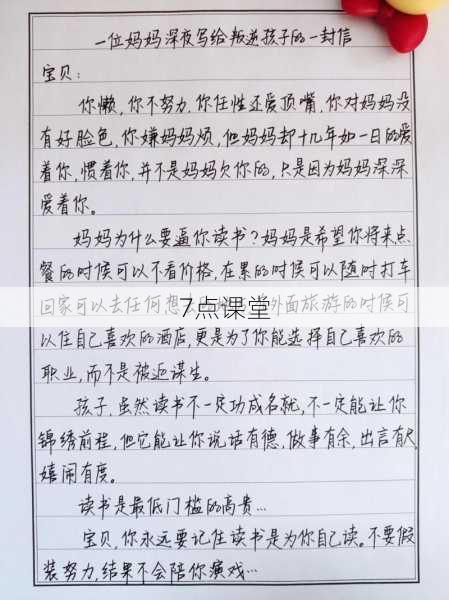 一位妈妈深夜写给叛逆孩子的一封信
宝贝：
你懒，你不努力，你任性还爱顶嘴，你对妈妈没
有好脸色，你嫌妈妈烦，但妈妈却十几年如一日的爱
着你，惯着你，并不是妈妈欠你的，只是因为妈妈深深
爱着你。
妈妈为什么要逼你读书？妈妈是希望你将来点
餐的时候可以不看价格，在累的时候可以随时打车
回家可以去任何想 外面旅游的时候可
7点课堂
以住自己喜欢的酒店，更是为了你能选择自己喜欢的
职业，而不是被迫谋生。
孩子，虽然读书不一定功成名就，不一定能让你
锦绣前程，但它能让你说话有德，做事有余，出言有尺，
嬉闹有度。
读书是最低门槛的高贵…
宝贝，你永远要记住读书是为你自己读。不要假
装努力，结果不会陪你演戏…